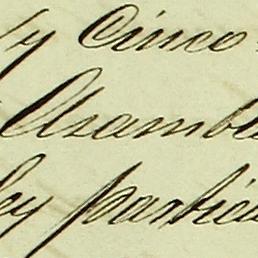 y Cinco
Asamble
ley particu